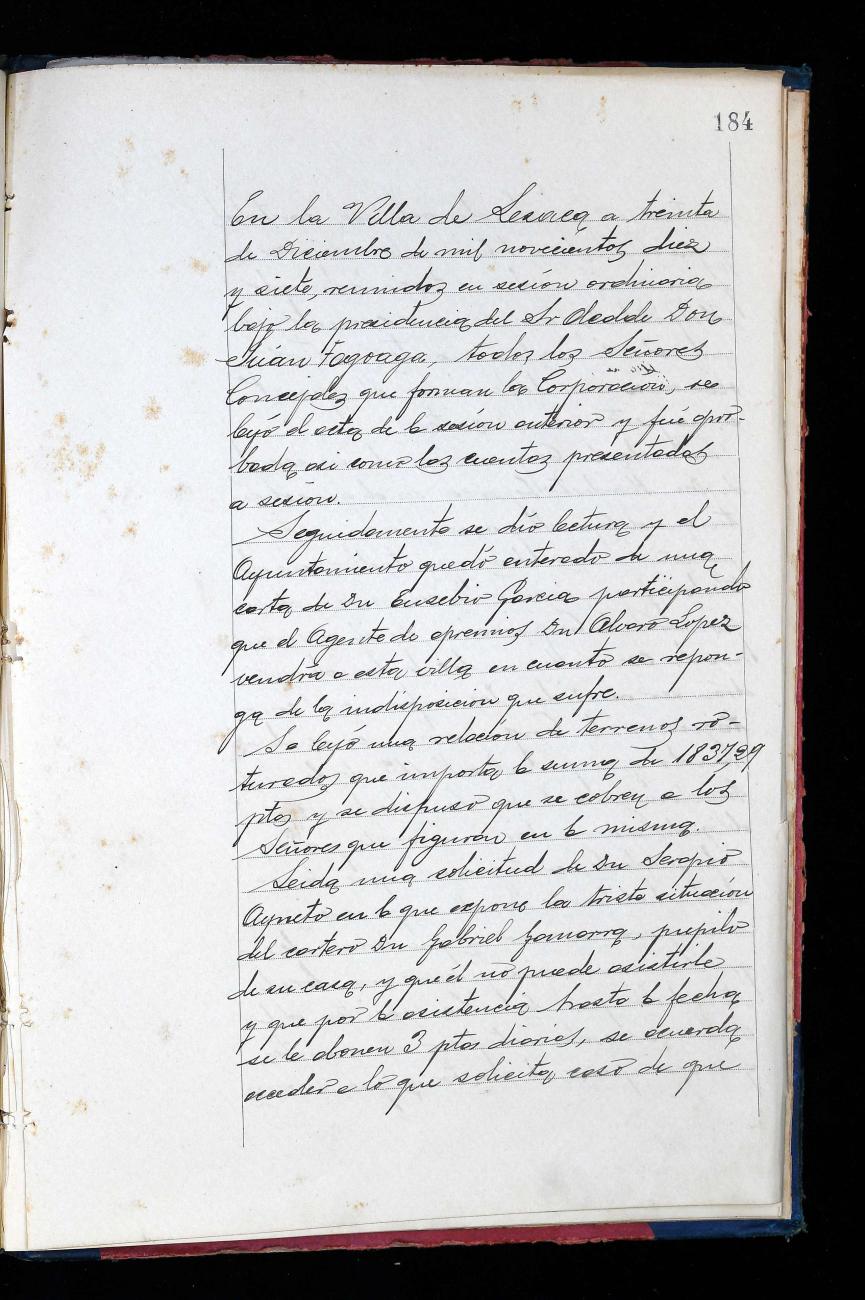 184
En la Villa de Lesaca a treinta
de Diciembre de mil novecientos diez
y siete, reunidos en sesión ordinaria
bajo la presidencia del Sr Alcalde Don
Juán Fagoaga, todos los Señores
Concejales que forman la Corporación, se
leyó el acta de la sesión anterior y fué apro-
bada asi como las cuentas presentadas
a sesión.
Seguidamente se dió lectura y el
Ayuntamiento quedó enterado de una
carta de Dn Eusebio Garcia participando
que el Agente de apremios Dn Alvaro Lopez
vendrá a esta villa en cuanto se repon-
ga de la indisposicion que sufre.
Se leyó una relación de terrenos ro-
turados que importa la suma de 1837,29
ptas y se dispuso que se cobren a los
Señores que figuran en la misma.
Leida una solicitud de Dn Serapio
Ayneto en la que expone la triste situación
del cartero Dn Gabriel Gamarra, pupilo
de su casa, y que él no puede asistirle
y que por la asistencia hasta la fecha
se le abonen 3 ptas diarias, se acuerda
acceder a lo que solicita caso de que